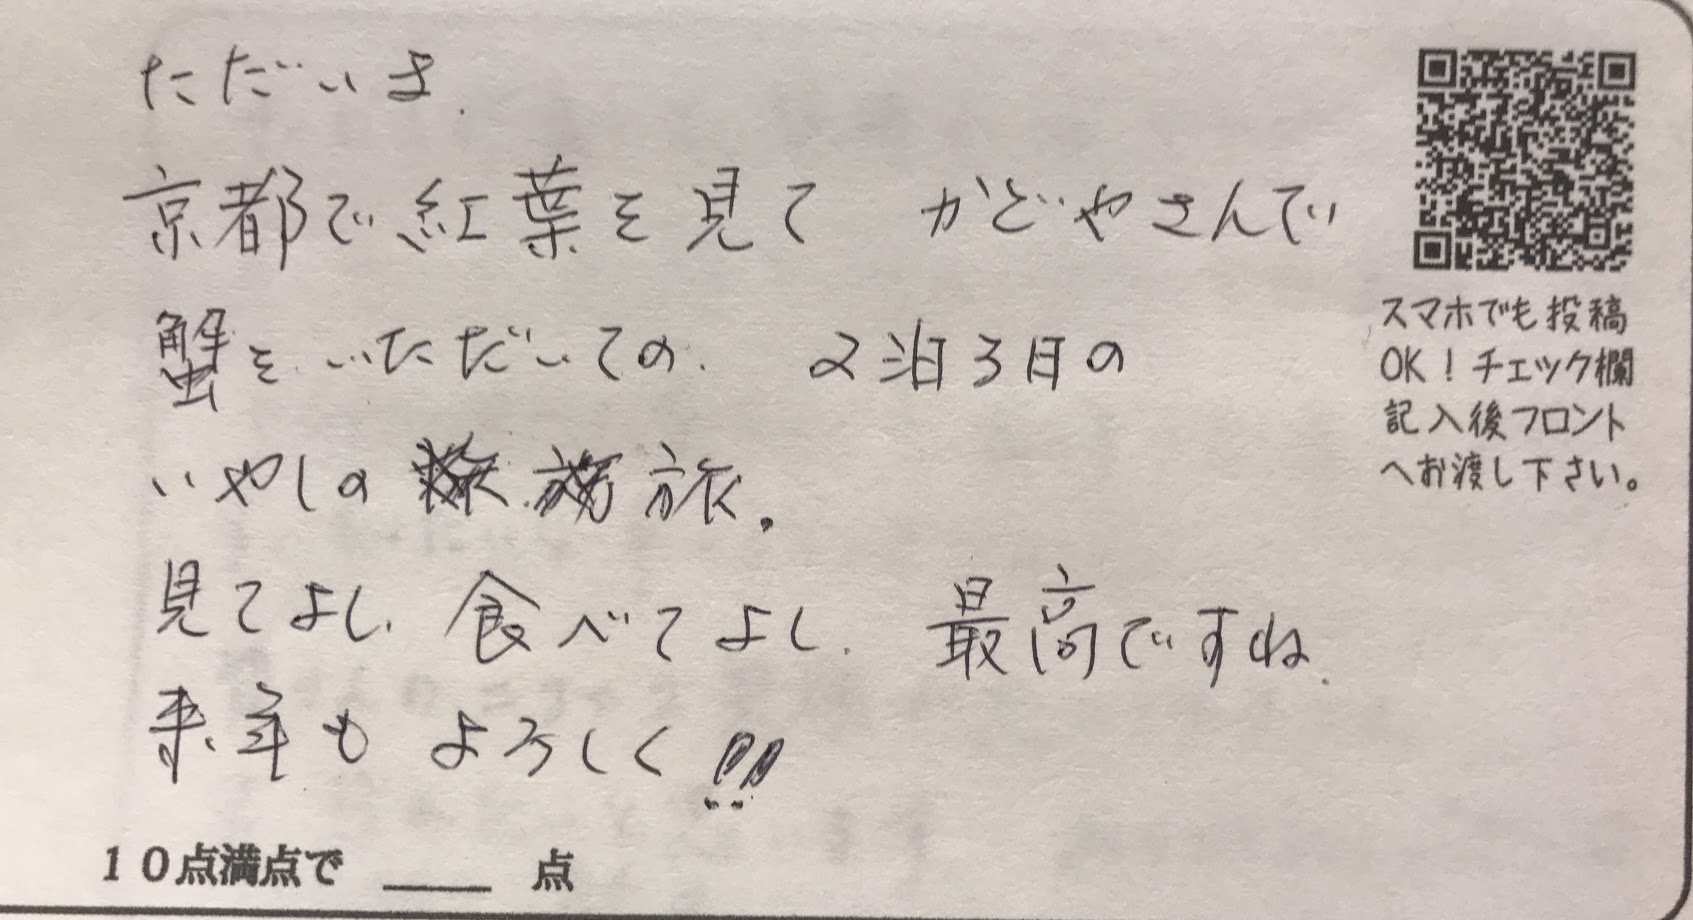 ただいま.
京都で紅葉を見て かどやさんで
蟹を いただいての. 2泊3日の
いやしの 旅。
見てよし. 食べてよし. 最高ですね.
来年も よろしく!!
10点満点で ____ 点
スマホでも投稿
OK！チェック欄
記入後フロント
へお渡し下さい。